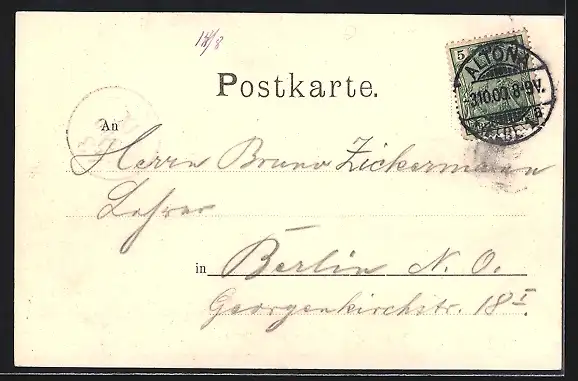 18/8
5
ALTONA
3.10.00. 8-9V.
Postkarte.
An
Herrn Bruno Zickermann
Lehrer
in Berlin N. O.
Georgenkirchstr. 18 I